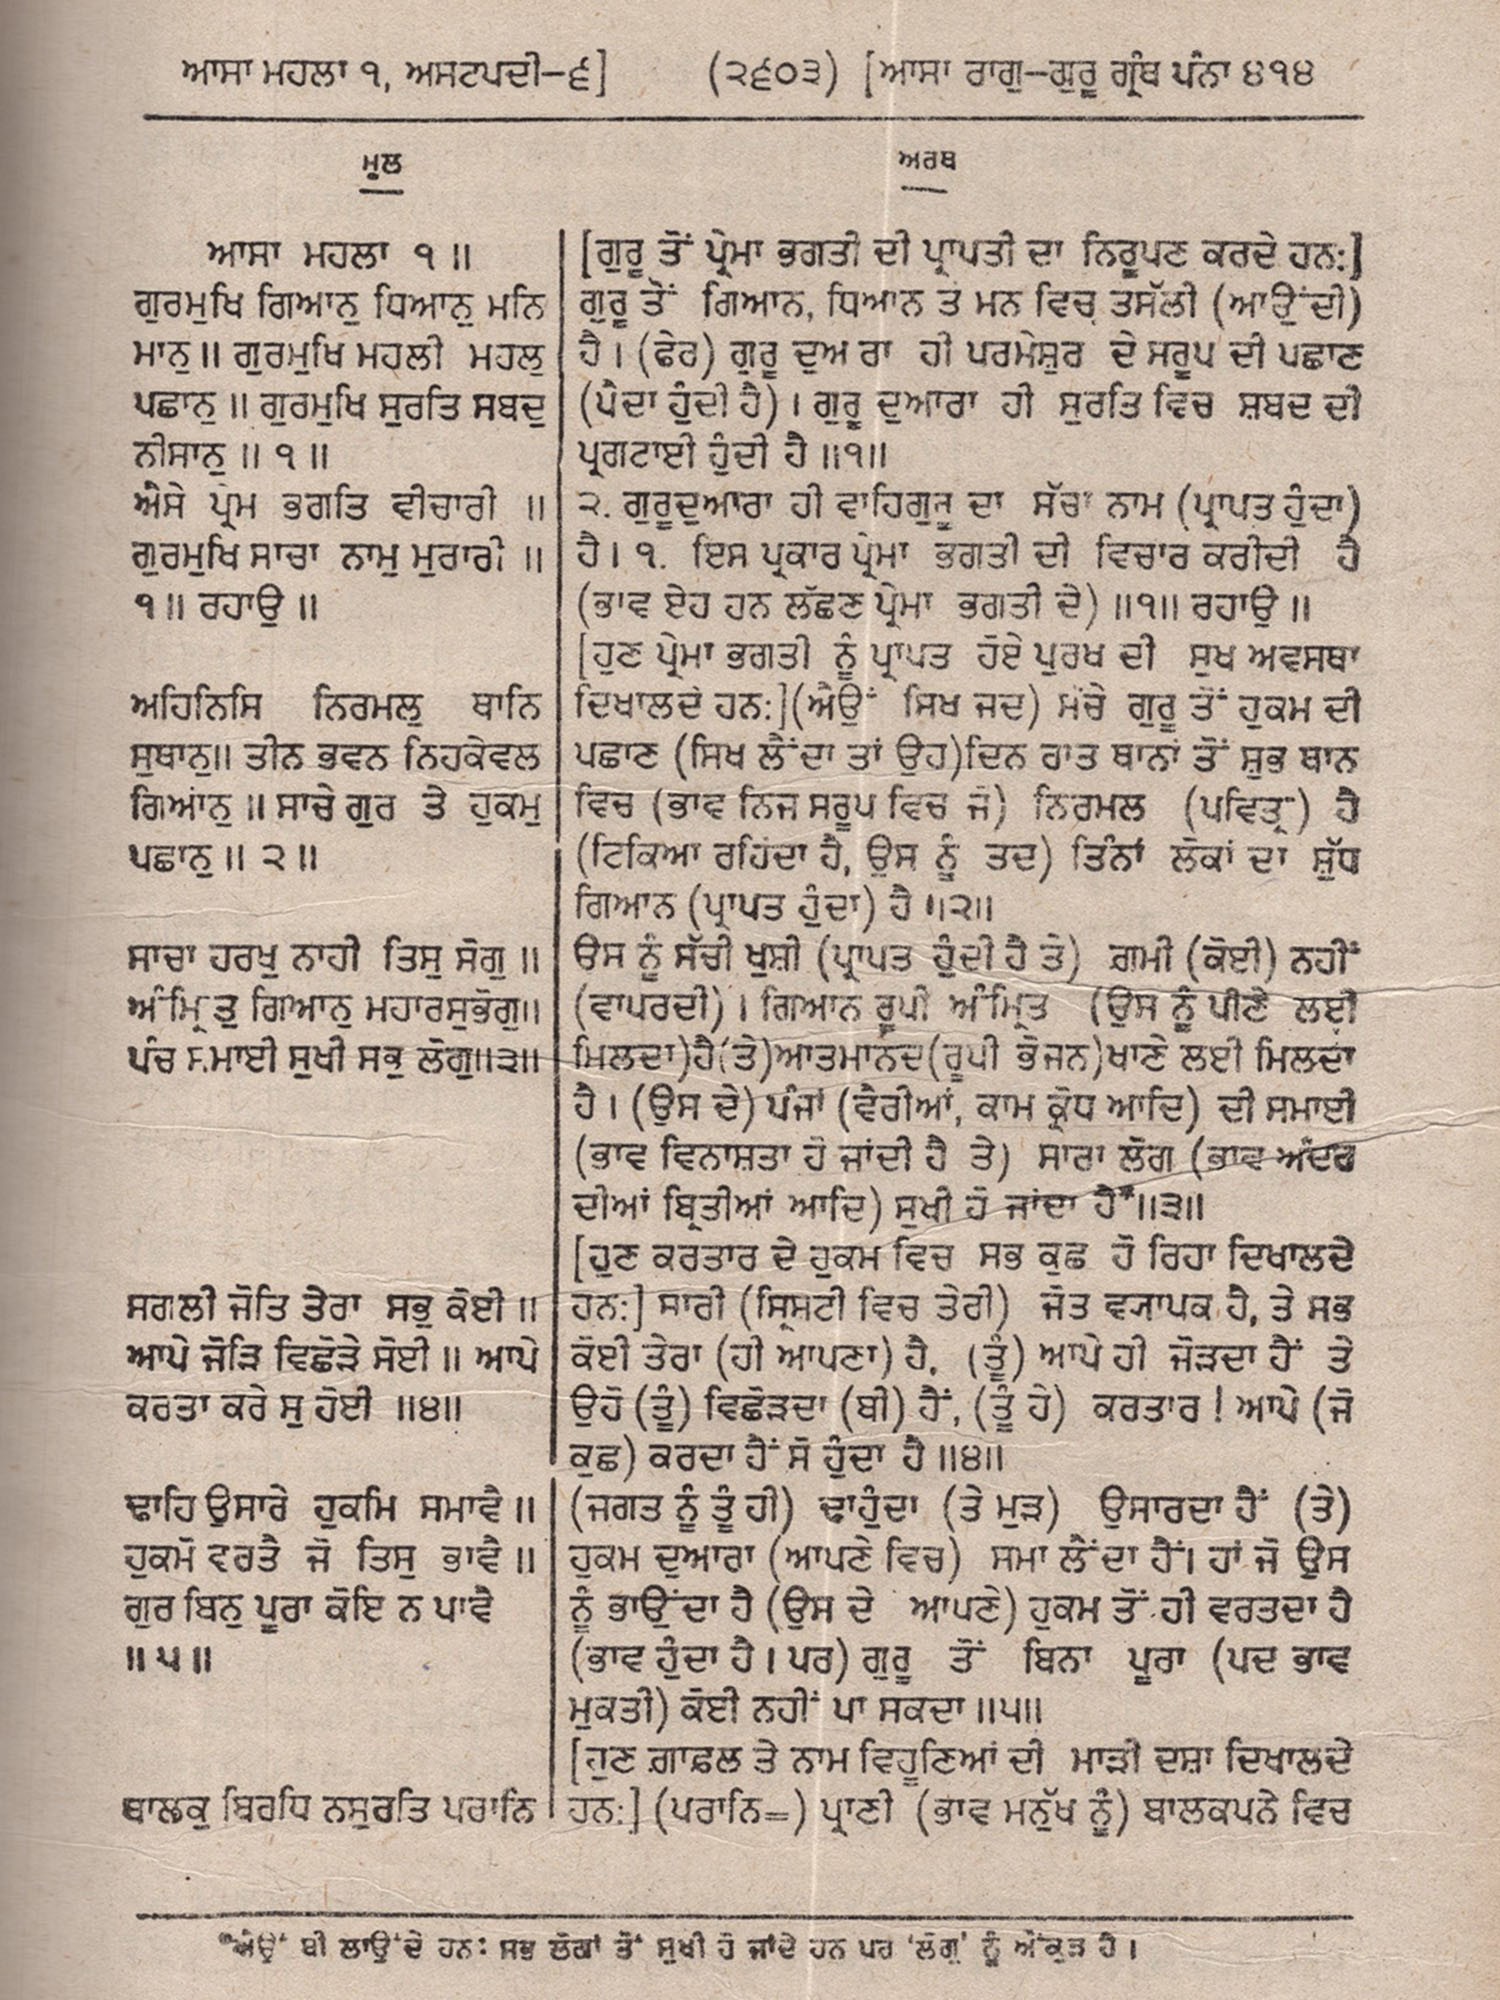 ਆਸਾ ਮਹਲਾ ੧, ਅਸਟਪਦੀ–੬] (੨੬੦੩) [ਆਸਾ ਰਾਗੁ–ਗੁਰੂ ਗ੍ਰੰਥ ਪੰਨਾ ੪੧੪
ਮੂਲ
ਆਸਾ ਮਹਲਾ ੧ ॥
ਗੁਰਮੁਖਿ ਗਿਆਨੁ ਧਿਆਨੁ ਮਨਿ
ਮਾਨੁ ॥ ਗੁਰਮੁਖਿ ਮਹਲੀ ਮਹਲੁ
ਪਛਾਨੁ ॥ ਗੁਰਮੁਖਿ ਸੁਰਤਿ ਸਬਦੁ
ਨੀਸਾਨੁ ॥ ੧ ॥
ਐਸੇ ਪ੍ਰੇਮ ਭਗਤਿ ਵੀਚਾਰੀ ॥
ਗੁਰਮੁਖਿ ਸਾਚਾ ਨਾਮੁ ਮੁਰਾਰੀ ॥
੧ ॥ ਰਹਾਉ ॥
ਅਹਿਨਿਸਿ ਨਿਰਮਲੁ ਥਾਨਿ
ਸੁਥਾਨੁ॥ ਤੀਨ ਭਵਨ ਨਿਹਕੇਵਲ
ਗਿਆਨੁ ॥ ਸਾਚੇ ਗੁਰ ਤੇ ਹੁਕਮੁ
ਪਛਾਨੁ ॥ ੨ ॥
ਸਾਚਾ ਹਰਖੁ ਨਾਹੀ ਤਿਸੁ ਸੋਗੁ ॥
ਅੰਮ੍ਰਿਤੁ ਗਿਆਨੁ ਮਹਾਰਸੁਭੋਗੁ॥
ਪੰਚ ਸਮਾਈ ਸੁਖੀ ਸਭੁ ਲੋਗੁ॥੩॥
ਸਗਲੀ ਜੋਤਿ ਤੇਰਾ ਸਭੁ ਕੋਈ ॥
ਆਪੇ ਜੋੜਿ ਵਿਛੋੜੇ ਸੋਈ ॥ ਆਪੇ
ਕਰਤਾ ਕਰੇ ਸੁ ਹੋਈ ॥੪॥
ਢਾਹਿ ਉਸਾਰੇ ਹੁਕਮਿ ਸਮਾਵੈ ॥
ਹੁਕਮੋ ਵਰਤੈ ਜੋ ਤਿਸੁ ਭਾਵੈ ॥
ਗੁਰ ਬਿਨੁ ਪੂਰਾ ਕੋਇ ਨ ਪਾਵੈ
॥ ੫ ॥
ਬਾਲਕੁ ਬਿਰਧਿ ਨਸੁਰਤਿ ਪਰਾਨਿ
ਅਰਥ
[ਗੁਰੂ ਤੋਂ ਪ੍ਰੇਮਾ ਭਗਤੀ ਦੀ ਪ੍ਰਾਪਤੀ ਦਾ ਨਿਰੂਪਣ ਕਰਦੇ ਹਨ:]
ਗੁਰੂ ਤੋਂ ਗਿਆਨ, ਧਿਆਨ ਤੇ ਮਨ ਵਿਚ ਤਸੱਲੀ (ਆਉਂਦੀ)
ਹੈ । (ਫੇਰ) ਗੁਰੂ ਦੁਆ ਰਾ ਹੀ ਪਰਮੇਸ਼ੁਰ ਦੇ ਸਰੂਪ ਦੀ ਪਛਾਣ
(ਪੈਦਾ ਹੁੰਦੀ ਹੈ) । ਗੁਰੂ ਦੁਆਰਾ ਹੀ ਸੁਰਤਿ ਵਿਚ ਸ਼ਬਦ ਦੀ
ਪ੍ਰਗਟਾਈ ਹੁੰਦੀ ਹੈ ॥੧॥
੨. ਗੁਰੂਦੁਆਰਾ ਹੀ ਵਾਹਿਗੁਰੂ ਦਾ ਸੱਚਾ ਨਾਮ (ਪ੍ਰਾਪਤ ਹੁੰਦਾ)
ਹੈ । ੧. ਇਸ ਪ੍ਰਕਾਰ ਪ੍ਰੇਮਾ ਭਗਤੀ ਦੀ ਵਿਚਾਰ ਕਰੀਦੀ ਹੈ
(ਭਾਵ ਏਹ ਹਨ ਲੱਛਣ ਪ੍ਰੇਮਾ ਭਗਤੀ ਦੇ) ॥੧॥ ਰਹਾਉ ॥
[ਹੁਣ ਪ੍ਰੇਮਾ ਭਗਤੀ ਨੂੰ ਪ੍ਰਾਪਤ ਹੋਏ ਪੁਰਖ ਦੀ ਸੁਖ ਅਵਸਥਾ
ਦਿਖਾਲਦੇ ਹਨ:](ਐਉਂ ਸਿਖ ਜਦ) ਸਚੇ ਗੁਰੂ ਤੋਂ ਹੁਕਮ ਦੀ
ਪਛਾਣ (ਸਿਖ ਲੈਂਦਾ ਤਾਂ ਉਹ)ਦਿਨ ਰਾਤ ਥਾਨਾਂ ਤੋਂ ਸ਼ੁਭ ਥਾਨ
ਵਿਚ (ਭਾਵ ਨਿਜ ਸਰੂਪ ਵਿਚ ਜੋ) ਨਿਰਮਲ (ਪਵਿਤ੍ਰ) ਹੈ
(ਟਿਕਿਆ ਰਹਿੰਦਾ ਹੈ, ਉਸ ਨੂੰ ਤਦ) ਤਿੰਨਾਂ ਲੋਕਾਂ ਦਾ ਸ਼ੁੱਧ
ਗਿਆਨ (ਪ੍ਰਾਪਤ ਹੁੰਦਾ) ਹੈ ॥੨॥
ਉਸ ਨੂੰ ਸੱਚੀ ਖੁਸ਼ੀ (ਪ੍ਰਾਪਤ ਹੁੰਦੀ ਹੈ ਤੇ) ਗ਼ਮੀ (ਕੋਈ) ਨਹੀਂ
(ਵਾਪਰਦੀ) । ਗਿਆਨ ਰੂਪੀ ਅੰਮ੍ਰਿਤ (ਉਸ ਨੂੰ ਪੀਣੇ ਲਈ
ਮਿਲਦਾ)ਹੈ(ਤੇ)ਆਤਮਾਨੰਦ(ਰੂਪੀ ਭੋਜਨ)ਖਾਣੇ ਲਈ ਮਿਲਦਾ
ਹੈ । (ਉਸ ਦੇ) ਪੰਜਾਂ (ਵੈਰੀਆਂ, ਕਾਮ ਕ੍ਰੋਧ ਆਦਿ) ਦੀ ਸਮਾਈ
(ਭਾਵ ਵਿਨਾਸ਼ਤਾ ਹੋ ਜਾਂਦੀ ਹੈ ਤੇ) ਸਾਰਾ ਲੋਗ (ਭਾਵ ਅੰਦਰ
ਦੀਆਂ ਬ੍ਰਿਤੀਆਂ ਆਦਿ) ਸੁਖੀ ਹੋ ਜਾਂਦਾ ਹੈ*॥੩॥
[ਹੁਣ ਕਰਤਾਰ ਦੇ ਹੁਕਮ ਵਿਚ ਸਭ ਕੁਛ ਹੋ ਰਿਹਾ ਦਿਖਾਲਦੇ
ਹਨ:] ਸਾਰੀ (ਸ੍ਰਿਸ਼ਟੀ ਵਿਚ ਤੇਰੀ) ਜੋਤ ਵ੍ਯਾਪਕ ਹੈ, ਤੇ ਸਭ
ਕੋਈ ਤੇਰਾ (ਹੀ ਆਪਣਾ) ਹੈ, (ਤੂੰ) ਆਪੇ ਹੀ ਜੋੜਦਾ ਹੈਂ ਤੇ
ਉਹੋ (ਤੂੰ) ਵਿਛੋੜਦਾ (ਬੀ) ਹੈਂ, (ਤੂੰ ਹੇ) ਕਰਤਾਰ ! ਆਪੇ (ਜੋ
ਕੁਛ) ਕਰਦਾ ਹੈਂ ਸੋ ਹੁੰਦਾ ਹੈ ॥੪॥
(ਜਗਤ ਨੂੰ ਤੂੰ ਹੀ) ਢਾਹੁੰਦਾ (ਤੇ ਮੁੜ) ਉਸਾਰਦਾ ਹੈਂ (ਤੇ)
ਹੁਕਮ ਦੁਆਰਾ (ਆਪਣੇ ਵਿਚ) ਸਮਾ ਲੈਂਦਾ ਹੈਂ। ਹਾਂ ਜੋ ਉਸ
ਨੂੰ ਭਾਉਂਦਾ ਹੈ (ਉਸ ਦੇ ਆਪਣੇ) ਹੁਕਮ ਤੋਂ ਹੀ ਵਰਤਦਾ ਹੈ
(ਭਾਵ ਹੁੰਦਾ ਹੈ । ਪਰ) ਗੁਰੂ ਤੋਂ ਬਿਨਾ ਪੂਰਾ (ਪਦ ਭਾਵ
ਮੁਕਤੀ) ਕੋਈ ਨਹੀਂ ਪਾ ਸਕਦਾ ॥੫॥
[ਹੁਣ ਗ਼ਾਫ਼ਲ ਤੇ ਨਾਮ ਵਿਹੂਣਿਆਂ ਦੀ ਮਾੜੀ ਦਸ਼ਾ ਦਿਖਾਲਦੇ
ਹਨ:] (ਪਰਾਨਿ=) ਪ੍ਰਾਣੀ (ਭਾਵ ਮਨੁੱਖ ਨੂੰ) ਬਾਲਕਪਨੇ ਵਿਚ
*ਐਉਂ ਬੀ ਲਾਉਂਦੇ ਹਨ: ਸਭ ਲੋਕਾਂ ਤੋਂ ਸੁਖੀ ਹੋ ਜਾਂਦੇ ਹਨ ਪਰ 'ਲੋਗੁ' ਨੂੰ ਔਂਕੁੜ ਹੈ ।